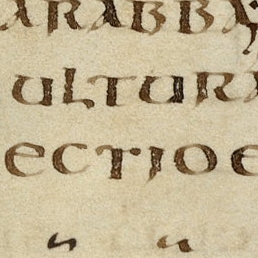 ARABBA
ULTURA
ECTIOE